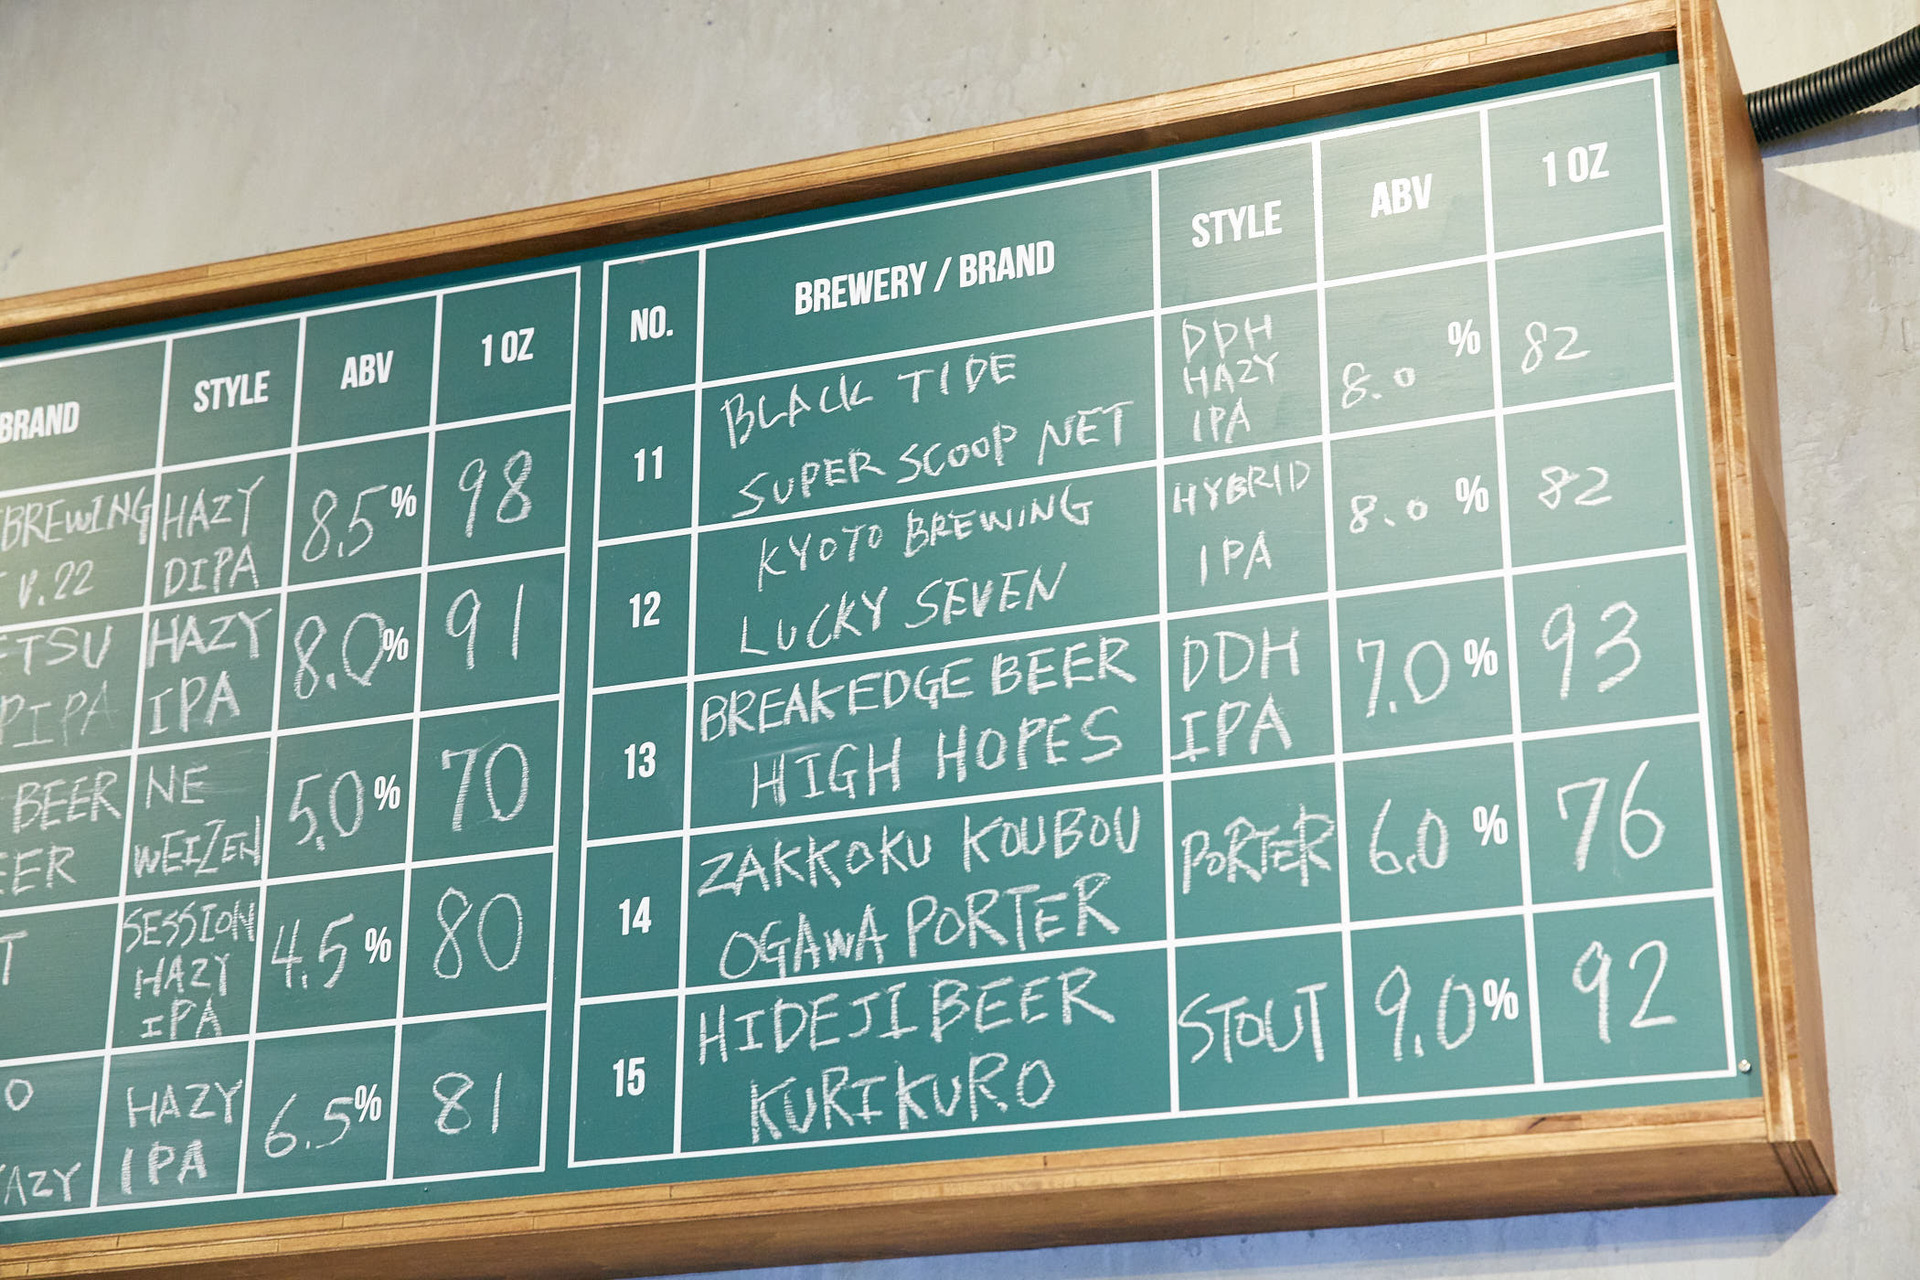 BRAND STYLE ABV 1 OZ
BREWING HAZY 8.5% 98
V.22 DIPA
HAZY 8.0% 91
PIPA IPA
BEER NE 5.0% 70
WEIZEN
SESSION 4.5% 80
HAZY
IPA
HAZY 6.5% 81
IPA
NO. BREWERY / BRAND STYLE ABV 1 OZ
11 BLACK TIDE DDH 8.0 % 82
SUPER SCOOP NET HAZY
IPA
12 KYOTO BREWING HYBRID 8.0 % 82
LUCKY SEVEN IPA
13 BREAKEDGE BEER DDH 7.0 % 93
HIGH HOPES IPA
14 ZAKKOKU KOUBOU PORTER 6.0 % 76
OGAWA PORTER
15 HIDEJI BEER STOUT 9.0% 92
KURIKURO